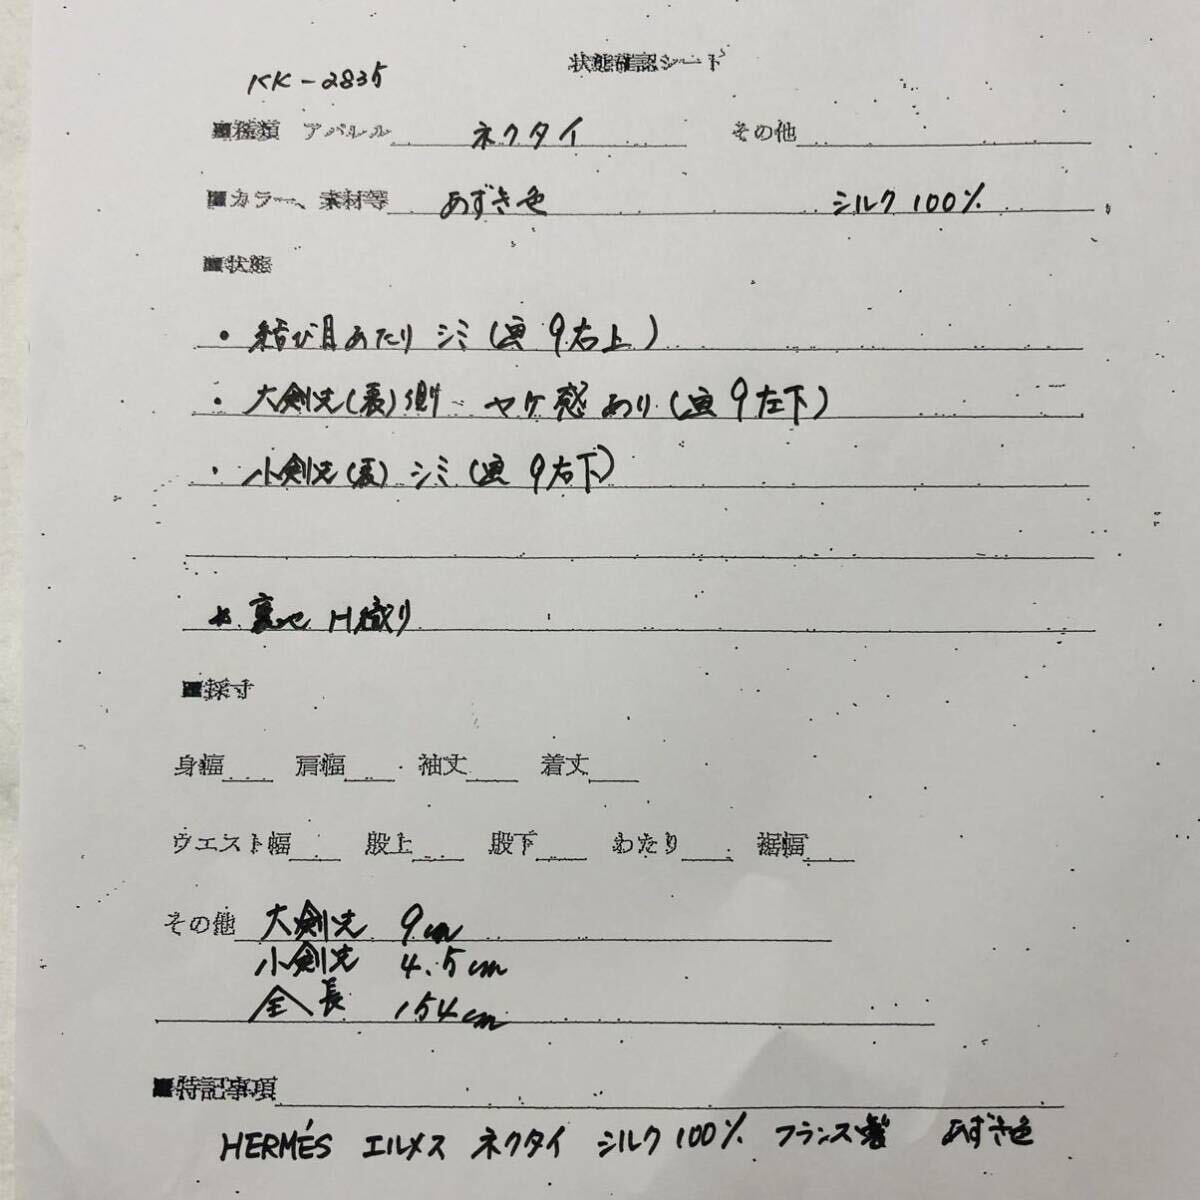 状態確認シート
KK-2835
■種類 アパレル ネクタイ その他
■カラー、素材等 あずき色 シルク100%
■状態
・結び目あたり シミ(画9右上)
・大剣先(裏)側 ヤケ感あり(画9左下)
・小剣先(裏)シミ(画9右下)
裏地 H織り
■採寸
身幅 肩幅 袖丈 着丈
ウエスト幅 股上 股下 わたり 裾幅
その他 大剣先 9cm
小剣先 4.5cm
全長 154cm
■特記事項
HERMÉS エルメス ネクタイ シルク100% フランス製 あずき色